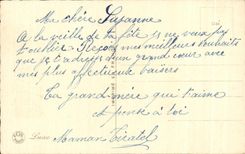 Ma chère Suzanne
A la veille de ta fête je ne veux pas
t'oublier Reçois mes meilleurs souhaits
que je t'adresse d'un grand cœur avec
mes plus affectueux baisers
Ta grand mère qui t'aime
et pense à toi
Maman
Luxe